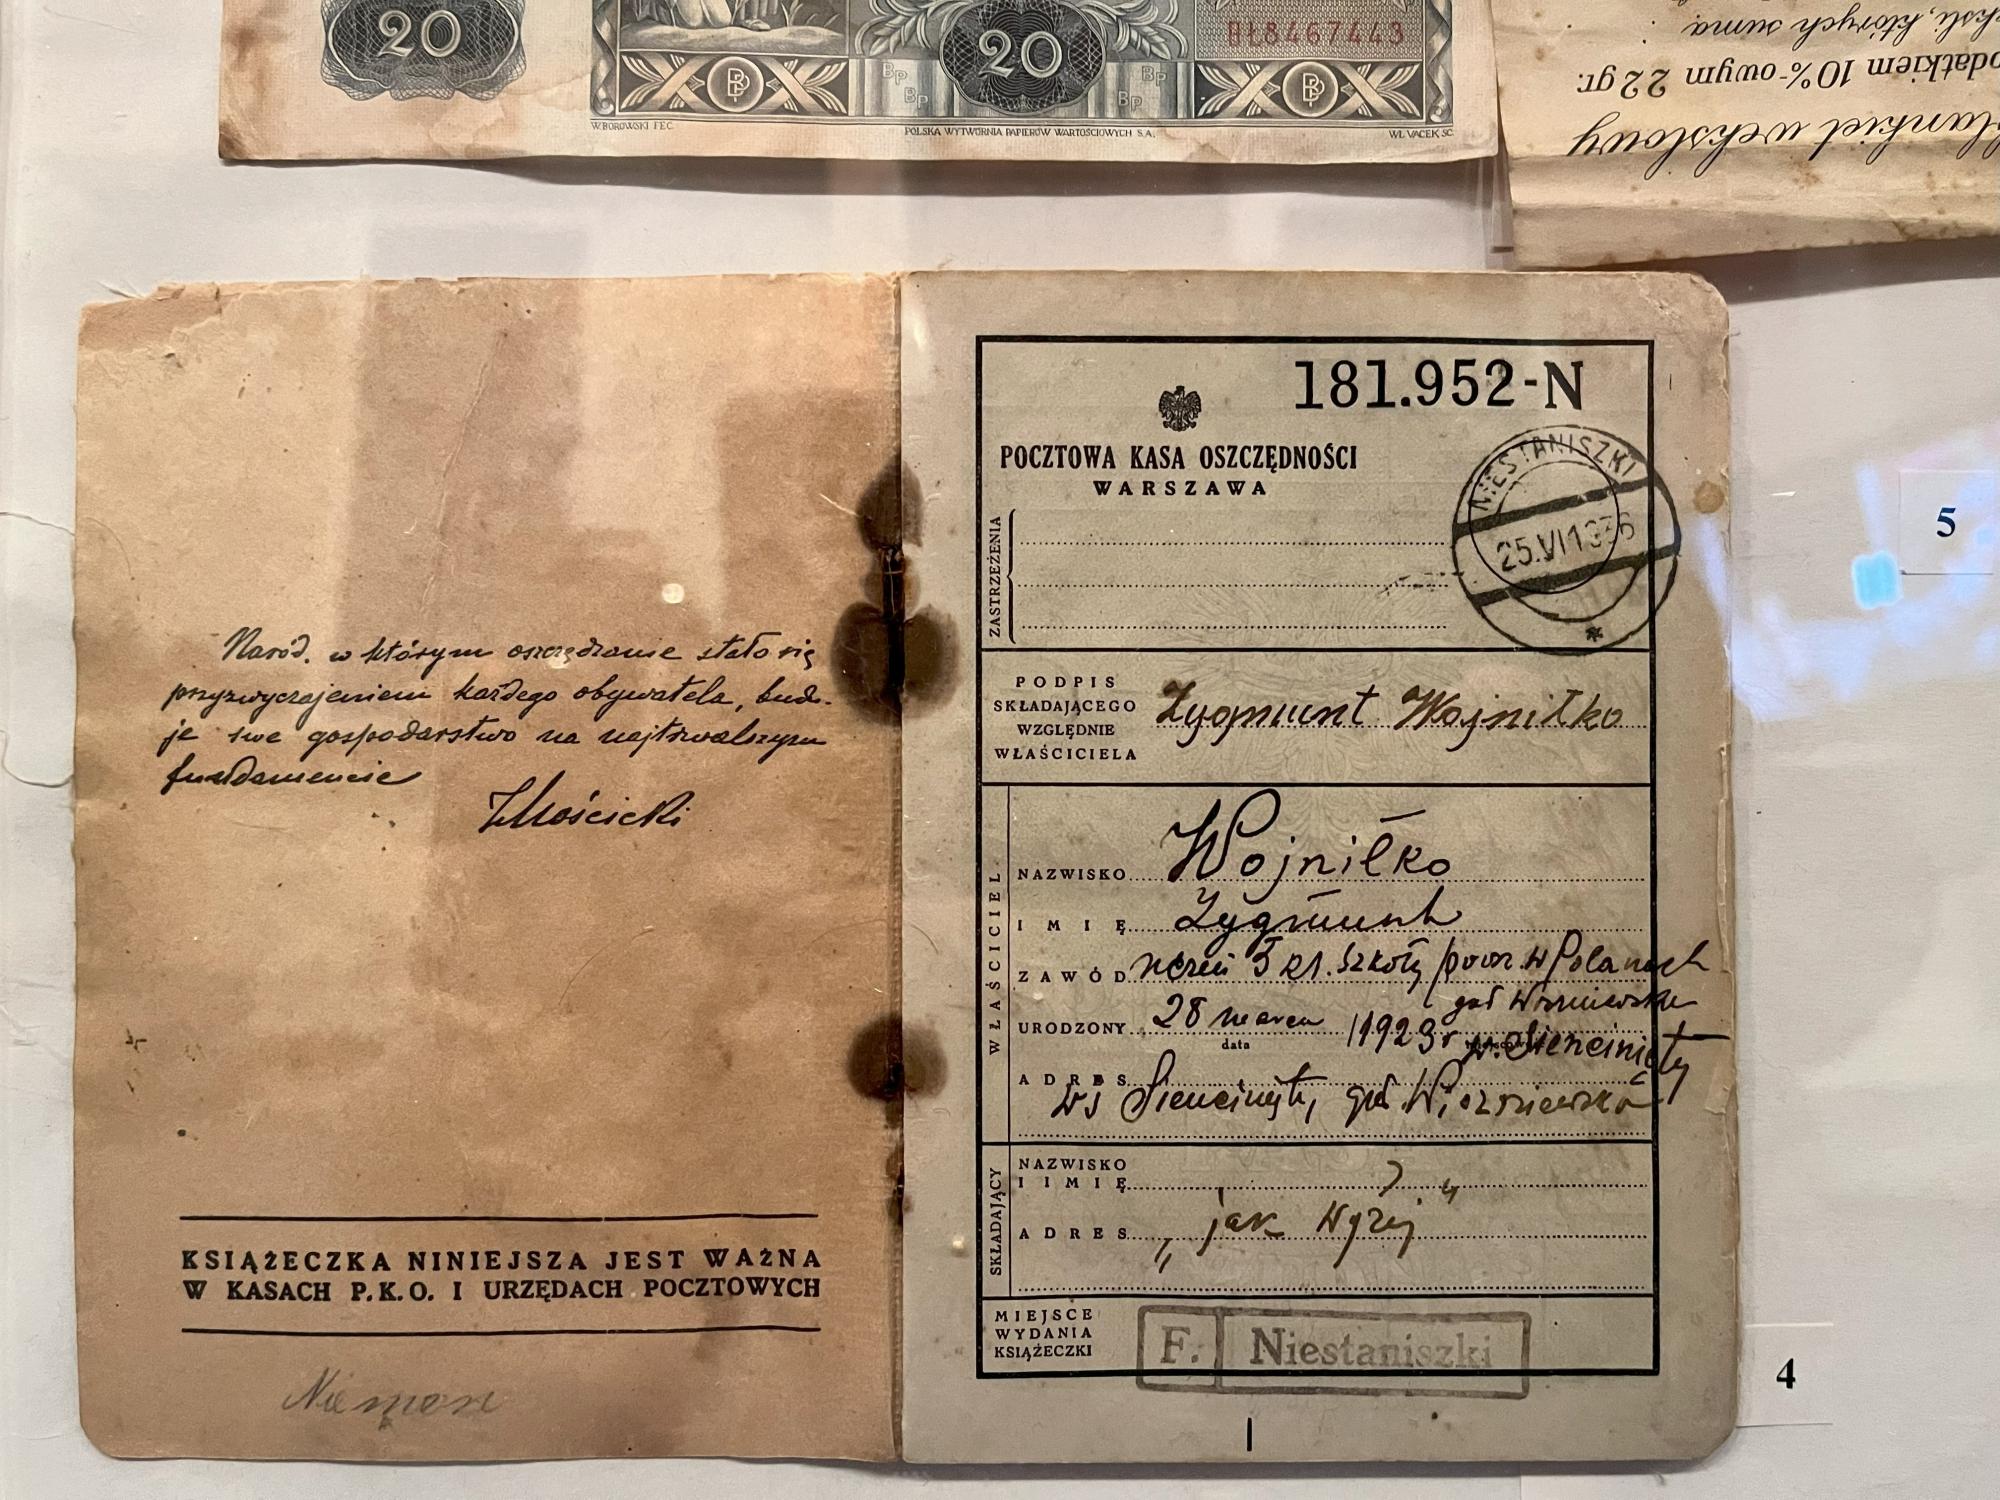 20
20
BŁ8467443
BP
BP
BP
BP
BP
BP
W. BOROWSKI FEC.
POLSKA WYTWÓRNIA PAPIERÓW WARTOŚCIOWYCH S.A.
WŁ. VACEK SC.
blankiet wekslowy
odatkiem 10%-owym 22 gr.
których suma
Naród, w którym oszczędzanie stało się
przyzwyczajeniem każdego obywatela, budu-
je swe gospodarstwo na najtrwalszym
fundamencie
IMościcki
KSIĄŻECZKA NINIEJSZA JEST WAŻNA
W KASACH P.K.O. I URZĘDACH POCZTOWYCH
Niemen
181.952-N
POCZTOWA KASA OSZCZĘDNOŚCI
WARSZAWA
NIESTANISZKI
25.VI1936
ZASTRZEŻENIA
PODPIS
SKŁADAJĄCEGO
WZGLĘDNIE
WŁAŚCICIELA
Zygmunt Wojniłko
WŁAŚCICIEL
NAZWISKO Wojniłko
IMIĘ Zygmunt
ZAWÓD uczeń 5 kl. Szkoły pow. w Polanach
URODZONY 28 marca 1923 r
data
ADRES
SKŁADAJĄCY
NAZWISKO
I IMIĘ
ADRES „ jak wyżej "
MIEJSCE
WYDANIA
KSIĄŻECZKI
F. Niestaniszki
5
4